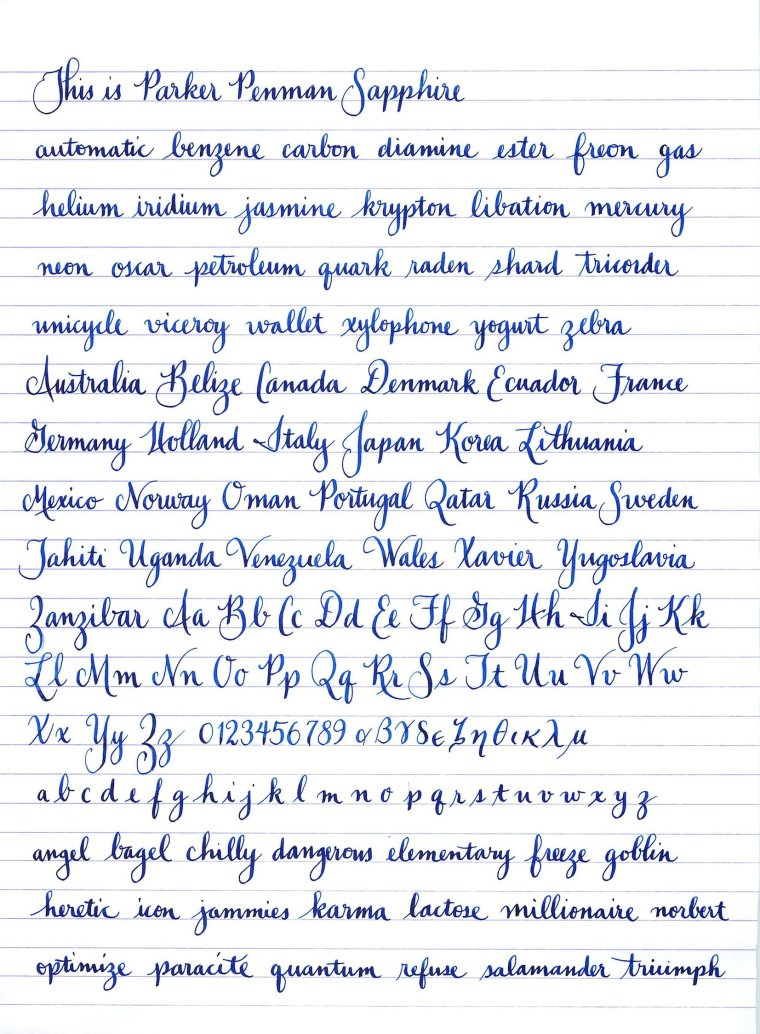 This is Parker Penman Sapphire
automatic benzene carbon diamine ester freon gas
helium iridium jasmine krypton libation mercury
neon oscar petroleum quark raden shard tricorder
unicycle viceroy wallet xylophone yogurt zebra
Australia Belize Canada Denmark Ecuador France
Germany Holland Italy Japan Korea Lithuania
Mexico Norway Oman Portugal Qatar Russia Sweden
Tahiti Uganda Venezuela Wales Xavier Yugoslavia
Zanzibar Aa Bb Cc Dd Ee Ff Gg Hh Ii Jj Kk
Ll Mm Nn Oo Pp Qq Rr Ss Tt Uu Vv Ww
Xx Yy Zz 0123456789 αβγδε ζηθικλμ
a b c d e f g h i j k l m n o p q r s t u v w x y z
angel bagel chilly dangerous elementary freeze goblin
heretic icon jammies karma lactose millionaire norbert
optimize paracite quantum refuse salamander triumph